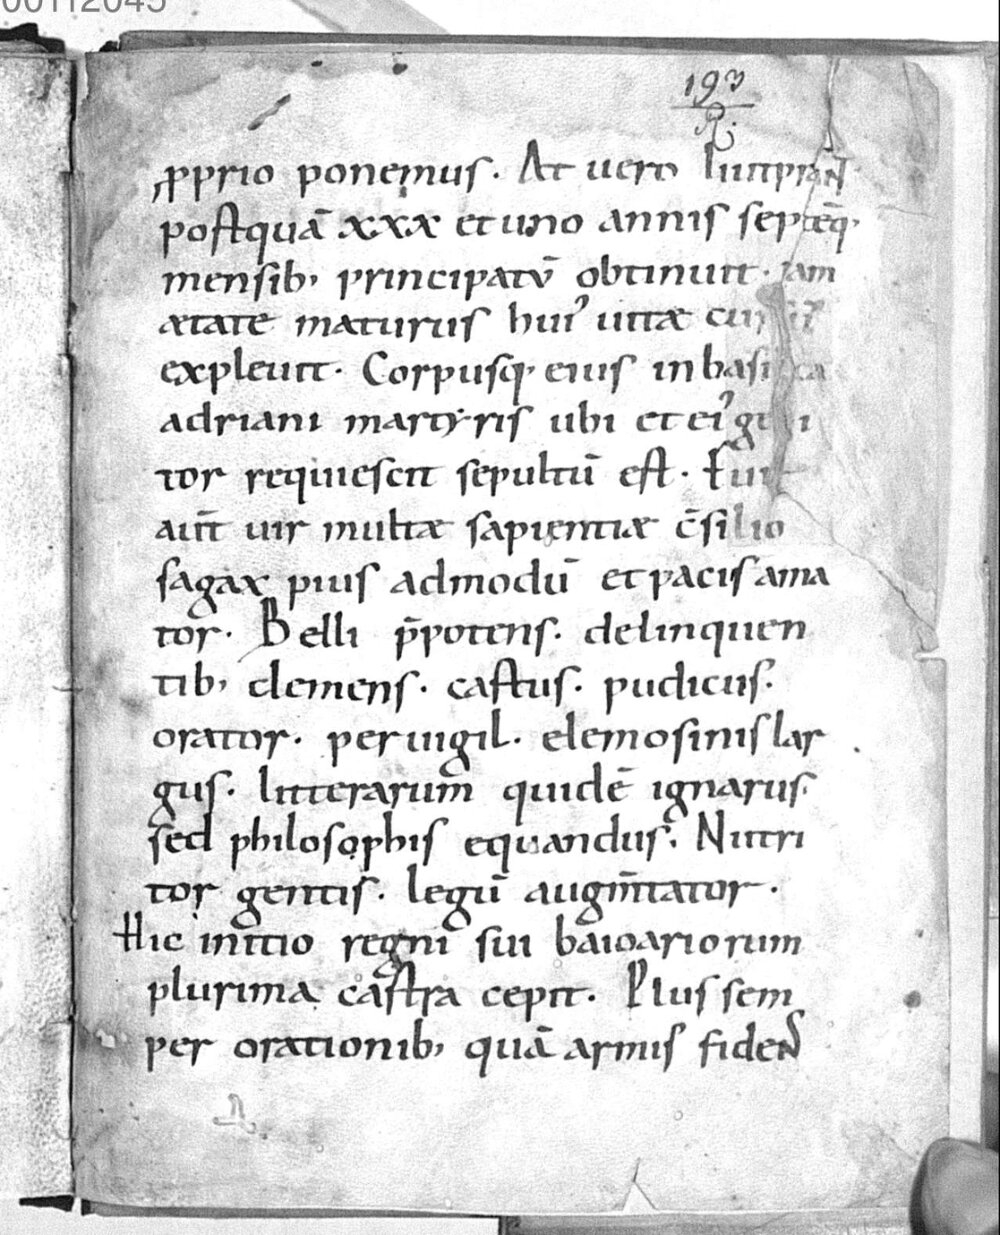 00112045
193
R.
p̱prio ponemus. At uero liutprand
postquā xxx et uno annis septēq;
mensib; principatū obtinuit. iam
ætate maturus hui᾽ uitæ
expleuit. Corpusq; eius in basi
adriani martyris ubi et ei᾽
tor requiescit sepultū est. Fuit
aut̄ uir multæ sapientiæ c̄silio
sagax pius admodū et pacis ama
tor. Belli p̄potens. delinquen
tib; clemens. castus. pudicus.
orator. peruigil. elemosinis lar
gus. litterarum̄ quidē ignarus.
sed philosophis equandus. Nutri
tor gentis. legū augm̄tator.
Hic initio regni sui baioariorum
plurima castra cepit. Plus sem
per orationib; quā armis fidens